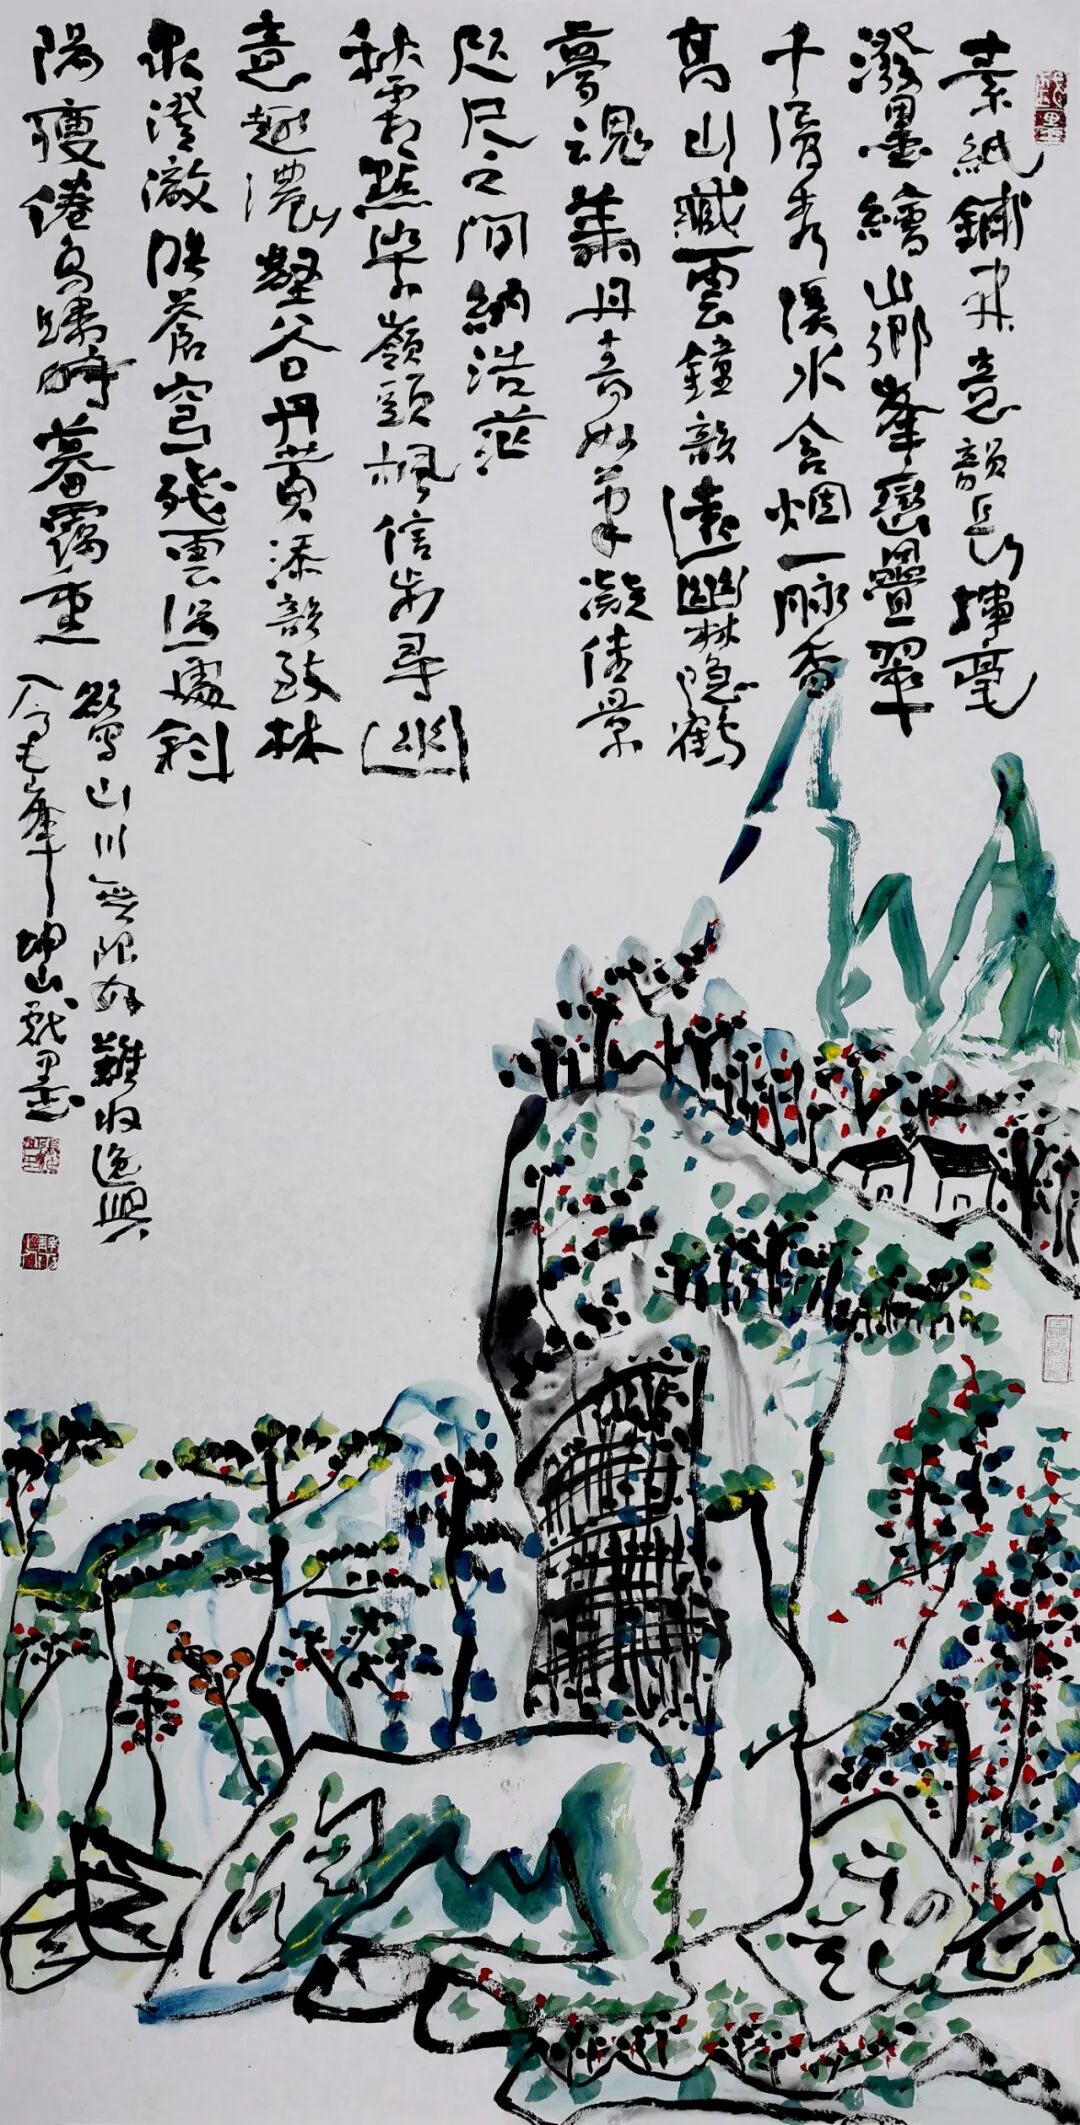 素紙鋪開意韻長揮毫
潑墨繪山鄉峯巒疊翠
千層秀溪水含烟一脉香
高山藏雲鐘韻遠幽林隱鶴
夢魂丹青妙筆凝佳景
咫尺之間納浩茫
秋霜點染嶺頭楓信步尋幽
意趣濃壑谷丹黃添韻致林
泉澄澈映蒼穹殘雲過處斜
陽瘦倦鳥歸時暮靄重
欲寫山川無限好難收逸興
入峯坤山戲墨